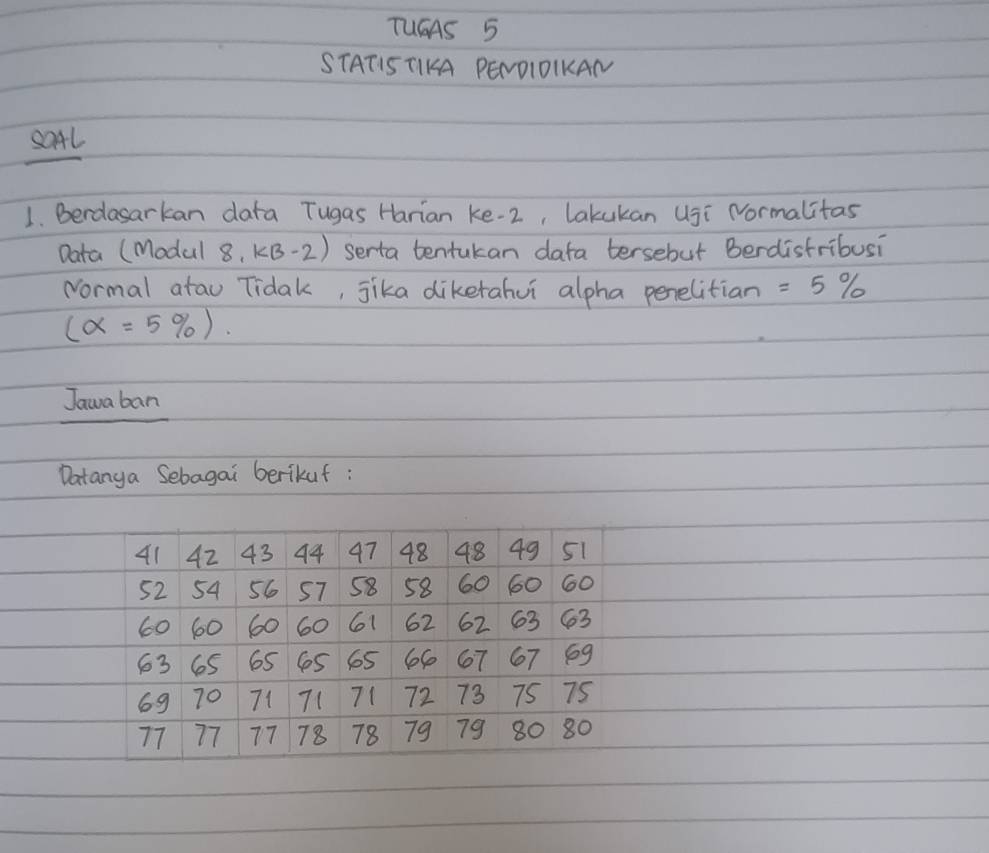 TUGAS 5
STATISTIKA PENDIDIKAN
SOAL
1. Berdasarkan data Tugas Harian ke-2, lakukan Uji Normalitas
Data (Modul 8, KB-2) serta tentukan data tersebut Berdistribusi
Normal atau Tidak, jika diketahui alpha penelitian = 5%
(α = 5%).
Jawaban
Datanya Sebagai berikut :
41 42 43 44 47 48 48 49 51
52 54 56 57 58 58 60 60 60
60 60 60 60 61 62 62 63 63
63 65 65 65 65 66 67 67 69
69 70 71 71 71 72 73 75 75
77 77 77 78 78 79 79 80 80